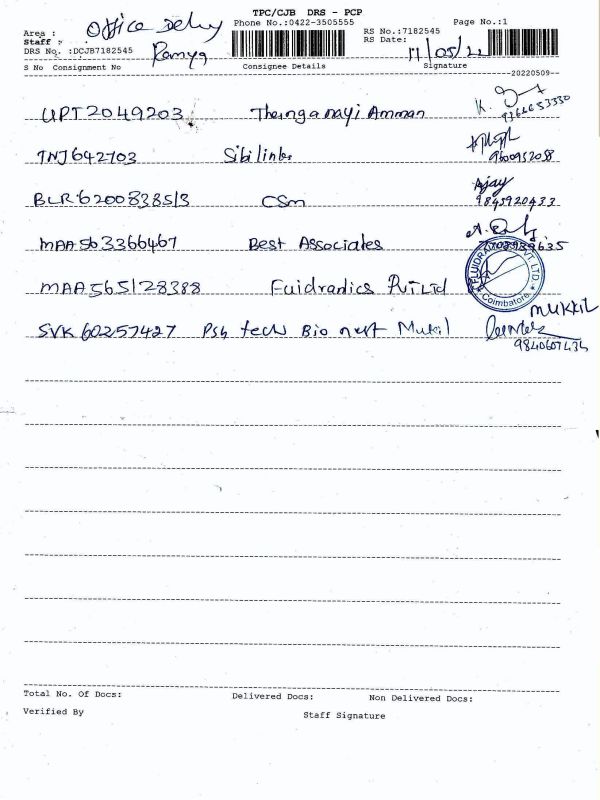 TPC/CJB DRS - PCP
Area : Office Delvy Phone No.:0422-3505555 Page No.:1
Staff : Ramya RS No.:7182545
DRS No. :DCJB7182545 RS Date: 11/05/22
S No Consignment No Consignee Details Signature
--20220509--
UPT2049203 Thanganayi Amman K.
TNJ642703 Sibilinks 9600952058
BLR6200838513 CSM Ajay 9845920433
MAA563366467 Best Associates
MAA565128388 Fuidranics Pvt Ltd FLUIDRA PVT LTD Coimbatore
SVK60257427 Psg tech Bio nest Mukil MUKKIL
9840607434
Total No. Of Docs: Delivered Docs: Non Delivered Docs:
Verified By Staff Signature